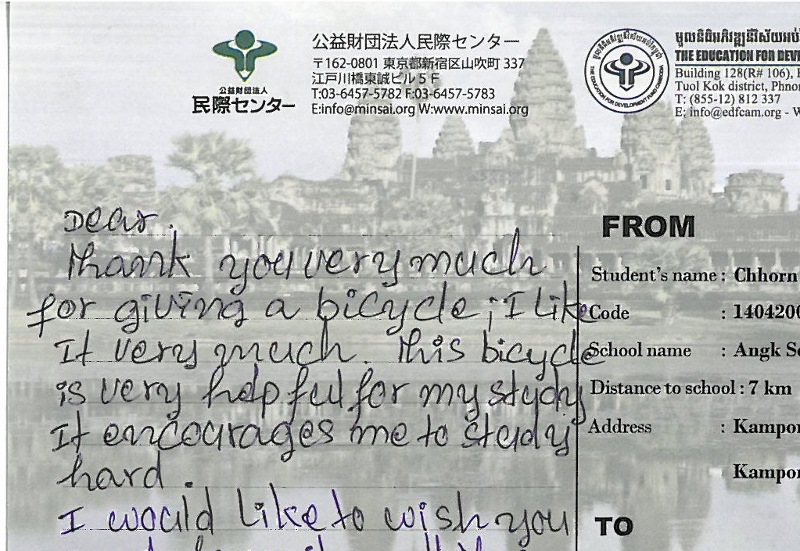 公益財団法人
民際センター
公益財団法人民際センター
〒162-0801 東京都新宿区山吹町 337
江戸川橋東誠ビル 5 F
T:03-6457-5782 F:03-6457-5783
E:info@minsai.org W:www.minsai.org
THE EDUCATION FOR DEV
Building 128(R# 106),
Tuol Kok district, Phno
T: (855-12) 812 337
E: info@edfcam.org - W
Dear.
Thank you very much
for giving a bicycle; I like
It very much. This bicycle
is very helpful for my study
It encourages me to study
hard.
I would like to wish you
FROM
Student's name : Chhorn
Code : 1404200
School name : Angk S
Distance to school : 7 km
Address : Kampo
Kampo
TO